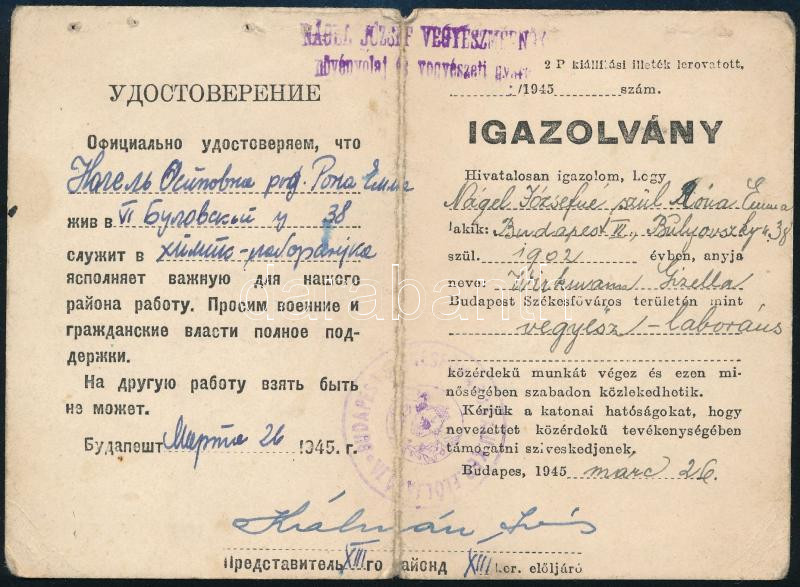 NÁGEL JÓZSEF VEGYÉSZMÉRNÖK
növényolaj és vegyészeti gyára
УДОСТОВЕРЕНИЕ
Официально удостоверяем, что
Нагель Осиповна род. Рона Емма
жив в VI Буловский у 38
служит в химик-лаборантка
ясполняет важную для нашего
района работу. Просим военние и
гражданские власти полное под-
держки.
На другую работу взять быть
не может.
Будапешт Марта 26 1945. г.
2 P kiállítási illeték lerovatott.
/1945 szám.
IGAZOLVÁNY
Hivatalosan igazolom, hogy
Nágel Józsefné szül Róna Emma
lakik: Budapest VI., Bulyovszky u. 38
szül. 1902 évben, anyja
neve: Gizella
Budapest Székesfőváros területén mint
vegyész-laboráns
közérdekű munkát végez és ezen mi-
nőségében szabadon közlekedhetik.
Kérjük a katonai hatóságokat, hogy
nevezettet közérdekű tevékenységében
támogatni sziveskedjenek.
Budapes, 1945 marc 26.
Kálmán
Представитель XIII го района XIII ker. elöljáró
darabanth